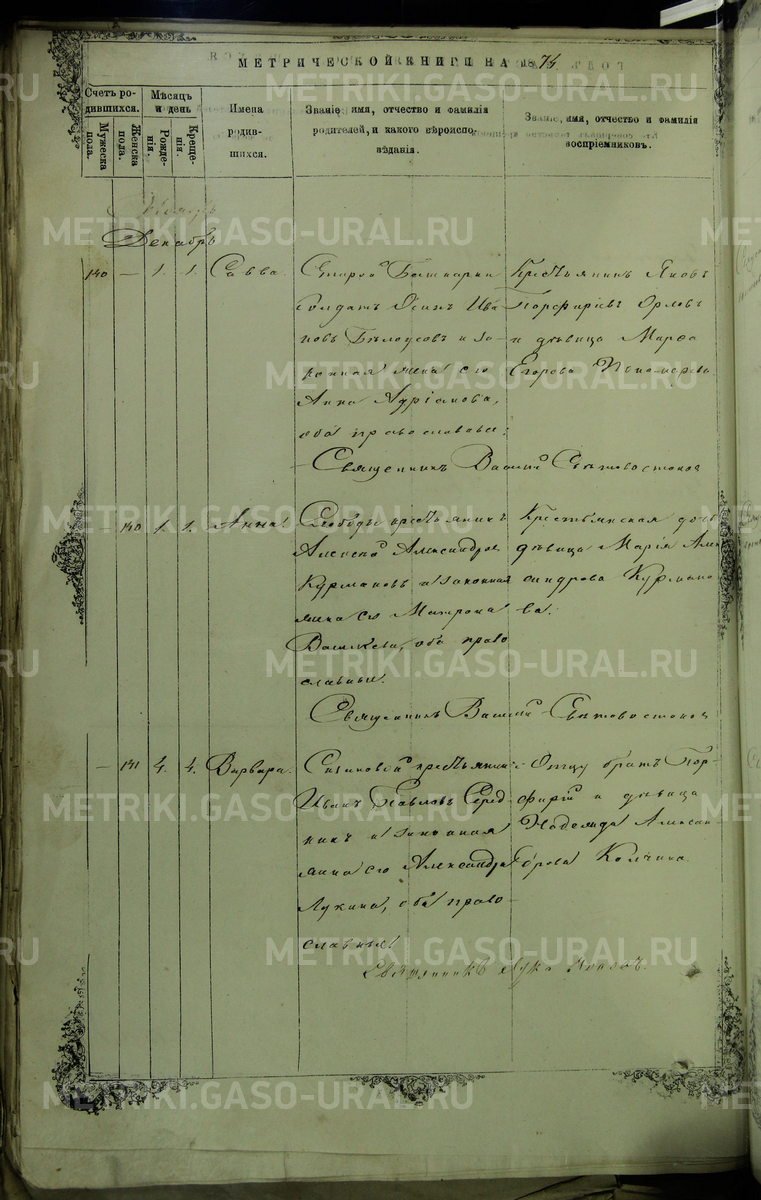 МЕТРИЧЕСКОЙ КНИГИ НА 1874
Счетъ родившихся.
Мужеска пола.
Женска пола.
Мѣсяцъ и день
Рожденія.
Крещенія.
Имена родившихся.
Званіе, имя, отчество и фамилія родителей, и какого вѣроисповѣданія.
Званіе, имя, отчество и фамилія воспріемниковъ.
Декабрь
140 — 1. 1. Савва.
Солдатъ Осипъ Ива
новъ Бѣлоусовъ и за-
конная жена его
Анна Адріанова,
оба православные;
Крестьянинъ Яковъ
Порфирьевъ Орловъ
и дѣвица Марѳа
Егорова
Священникъ Василій Свѣтовостоковъ
— 140 1. 1. Анна.
Слободы крестьянинъ
Алексѣй Александровъ
Курмановъ и законная
жена его Матрона
Васильева, оба право
славные.
Крестьянская дочь
дѣвица Марія Алек
сандрова Курмано
ва.
Священникъ Василій Свѣтовостоковъ
— 141 4. 4. Варвара.
крестьянинъ
Иванъ Павловъ Серед-
кинъ и законная
жена его Александра
Лукина, оба право-
славные.
Отцу братъ Пор-
фирій и дѣвица
Надежда Алексан
дрова Колчина
Священникъ Лука Поповъ.
METRIKI.GASO-URAL.RU